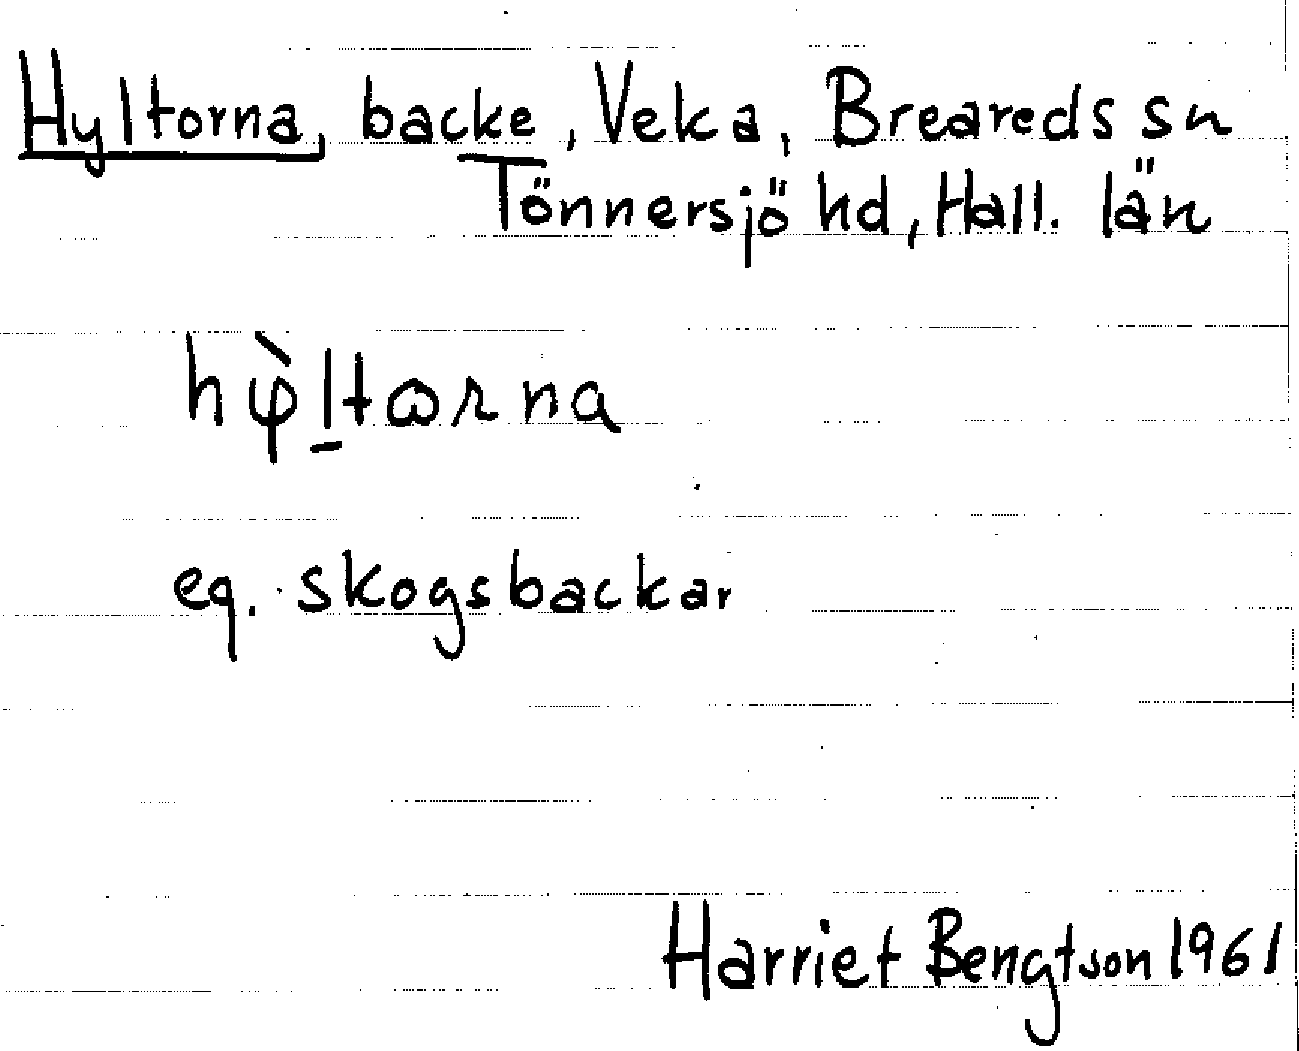 Hyltorna, backe, Veka, Breareds sn
Tönnersjö hd, Hall. län
hφ̀l̲tɷrna
eg. skogsbackar
Harriet Bengtson 1961